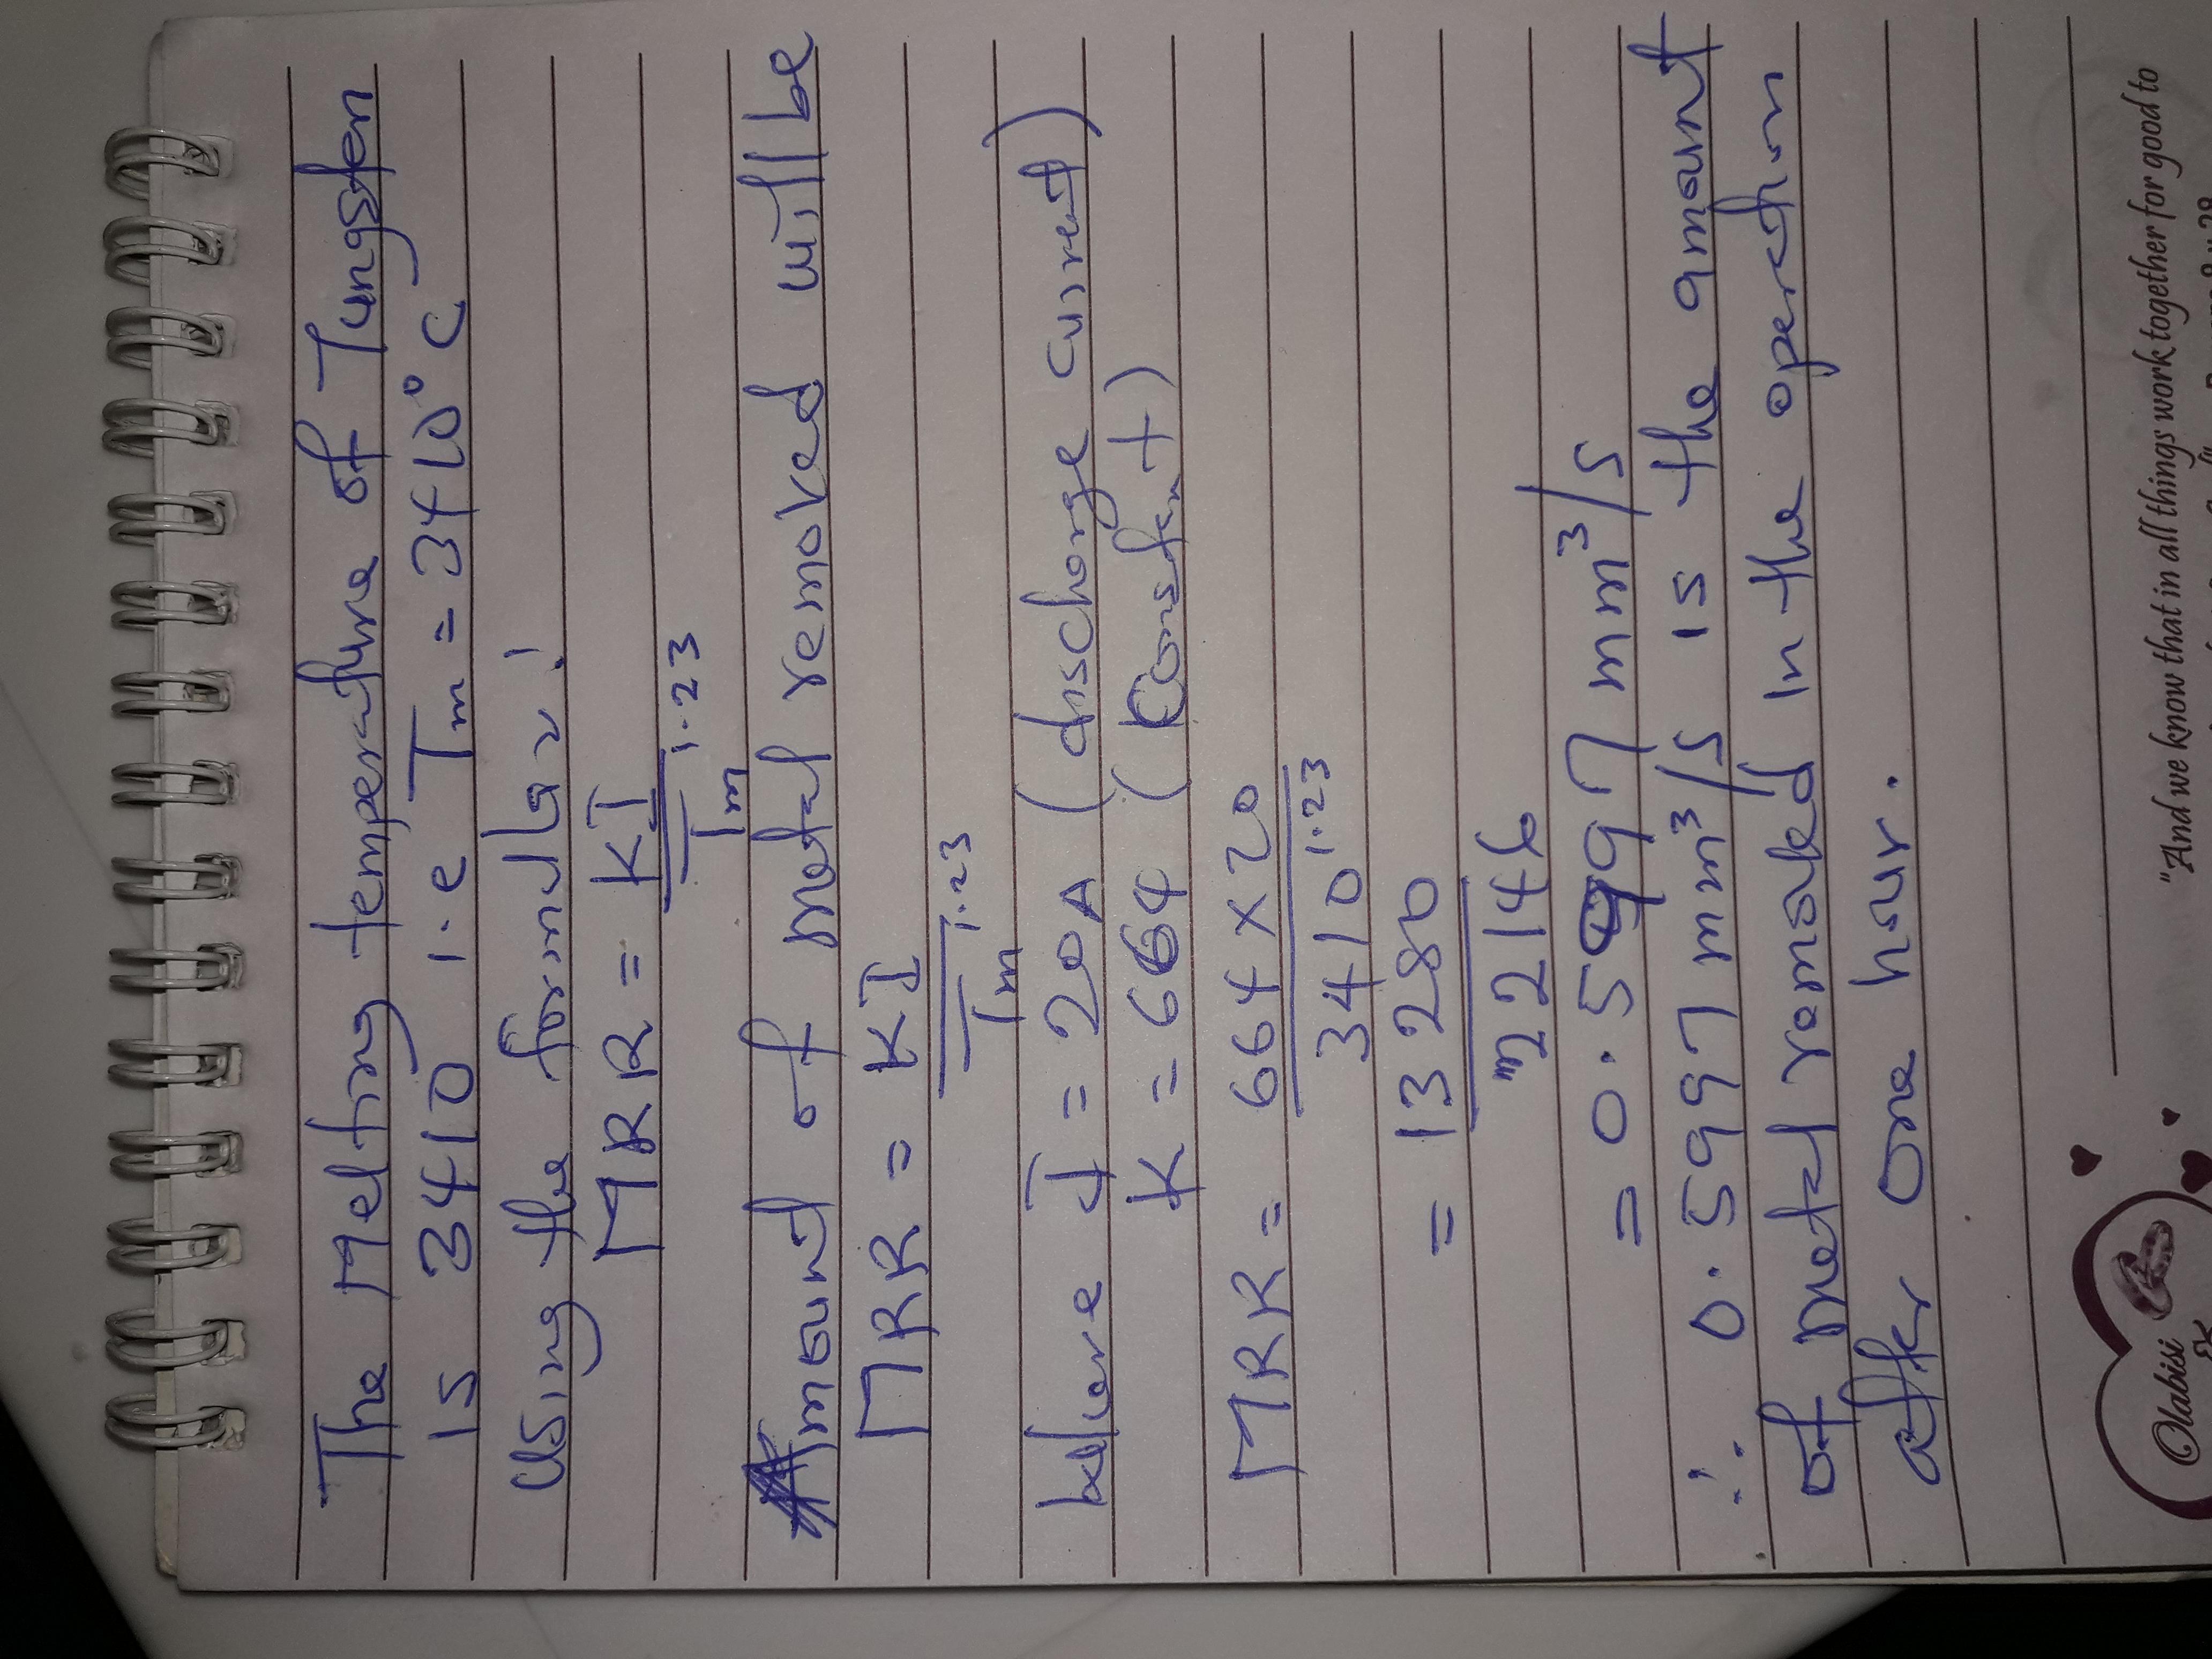 The Melting temperature of Tungsten
is 3410 i.e Tm = 3410°C
Using the formular!
MRR = KI
Tm 1.23
Amount of metal removed will be
MRR = KI
Tm 1.23
where I = 20A (discharge current)
K = 664 (Constant)
MRR = 664 x 20
3410 1.23
= 13280
22146
= 0.5997 mm³/s
∴ 0.5997 mm³/s is the amount
of metal removed in the operation
after one hour.
"And we know that in all things work together for good to
Olabisi